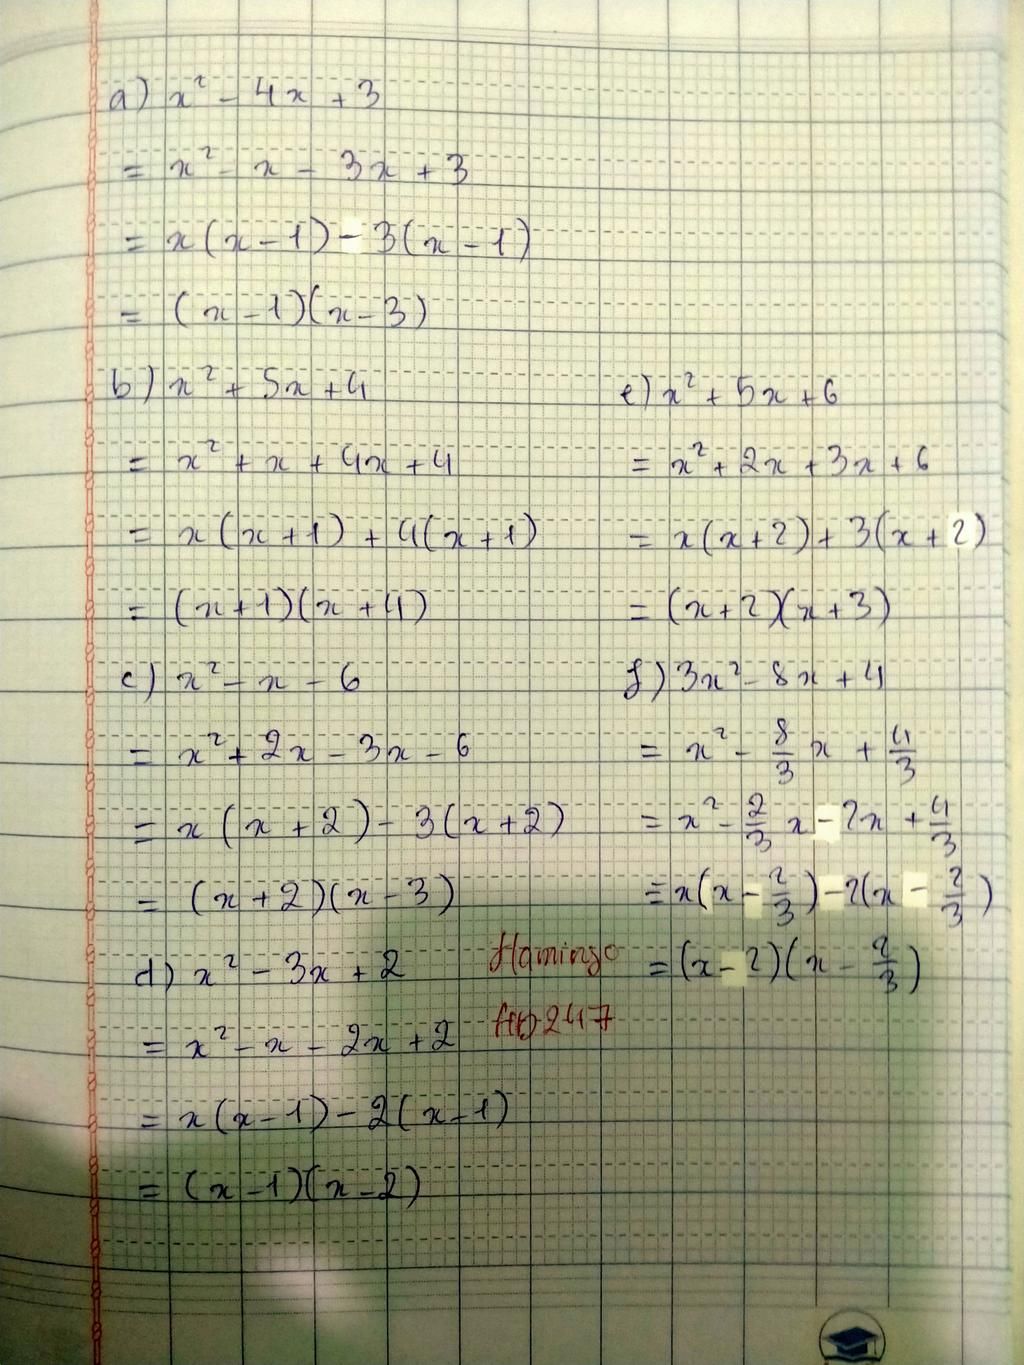 a) x² - 4x + 3
= x² - x - 3x + 3
= x(x-1) - 3(x-1)
= (x-1)(x-3)
b) x² + 5x + 4
= x² + x + 4x + 4
= x(x+1) + 4(x+1)
= (x+1)(x+4)
c) x² - x - 6
= x² + 2x - 3x - 6
= x(x+2) - 3(x+2)
= (x+2)(x-3)
d) x² - 3x + 2
= x² - x - 2x + 2
= x(x-1) - 2(x-1)
= (x-1)(x-2)
e) x² + 5x + 6
= x² + 2x + 3x + 6
= x(x+2) + 3(x+2)
= (x+2)(x+3)
f) 3x² - 8x + 4
= x² - 8/3 x + 4/3
= x² - 2/3 x - 2x + 4/3
= x(x - 2/3) - 2(x - 2/3)
= (x-2)(x - 2/3)
flamingo